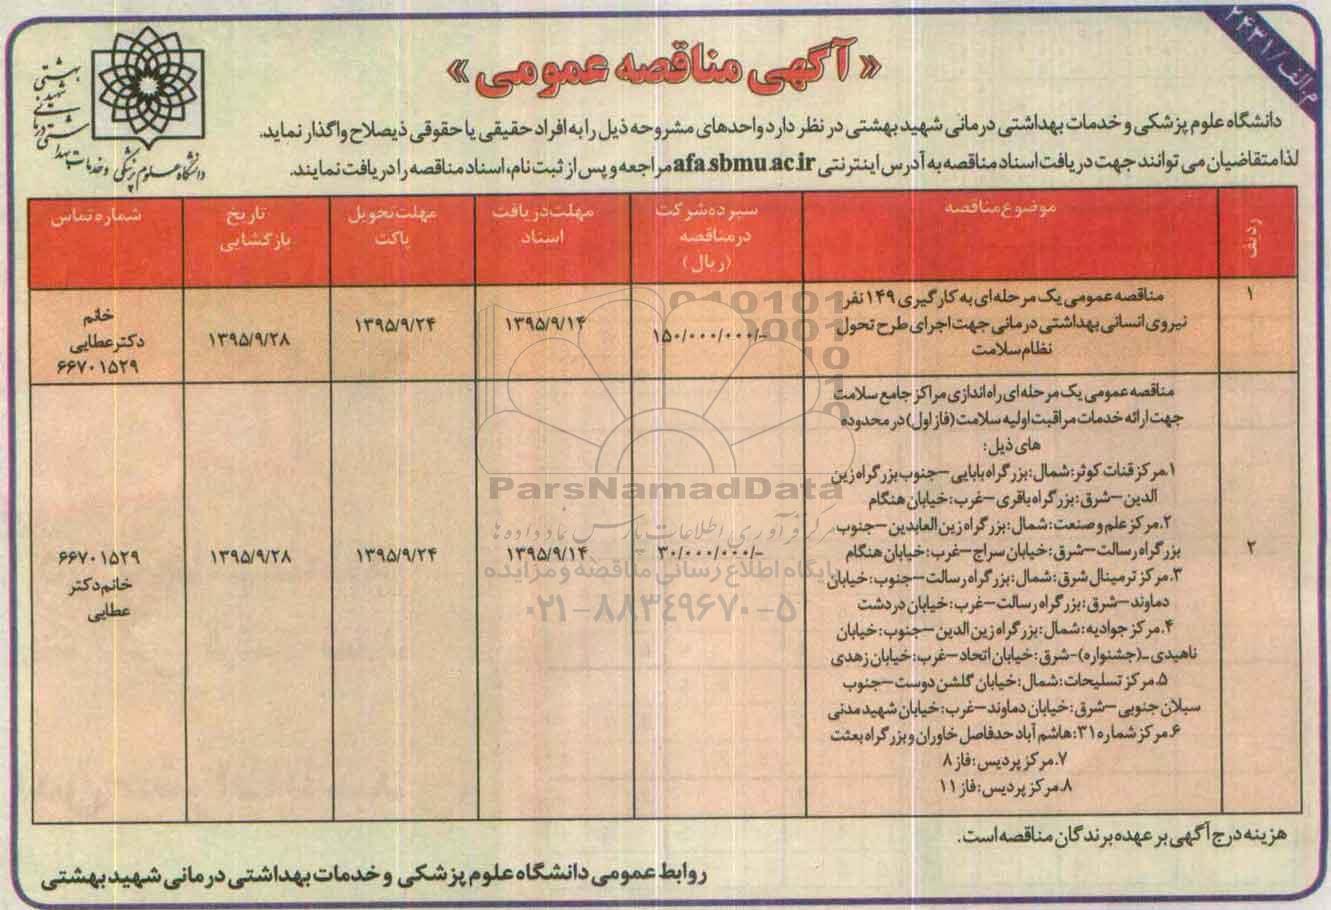 م.الف/۲۴۳۱
«آگهی مناقصه عمومی»
دانشگاه علوم پزشکی و خدمات بهداشتی درمانی شهید بهشتی
دانشگاه علوم پزشکی و خدمات بهداشتی درمانی شهید بهشتی در نظر دارد واحدهای مشروحه ذیل را به افراد حقیقی یا حقوقی ذیصلاح واگذار نماید.
لذا متقاضیان می توانند جهت دریافت اسناد مناقصه به آدرس اینترنتی afa.sbmu.ac.ir مراجعه و پس از ثبت نام، اسناد مناقصه را دریافت نمایند.
ردیف
موضوع مناقصه
سپرده شرکت
در مناقصه
(ریال)
مهلت دریافت
اسناد
مهلت تحویل
پاکت
تاریخ
بازگشایی
شماره تماس
۱
مناقصه عمومی یک مرحله ای به کارگیری ۱۴۹ نفر
نیروی انسانی بهداشتی درمانی جهت اجرای طرح تحول
نظام سلامت
۱۵۰/۰۰۰/۰۰۰/-
۱۳۹۵/۹/۱۴
۱۳۹۵/۹/۲۴
۱۳۹۵/۹/۲۸
خانم
دکتر عطایی
۶۶۷۰۱۵۲۹
۲
مناقصه عمومی یک مرحله ای راه اندازی مراکز جامع سلامت
جهت ارائه خدمات مراقبت اولیه سلامت (فاز اول) در محدوده
های ذیل:
۱.مرکز قنات کوثر: شمال: بزرگراه بابایی – جنوب بزرگراه زین
الدین – شرق: بزرگراه باقری – غرب: خیابان هنگام
۲.مرکز علم و صنعت: شمال: بزرگراه زین العابدین – جنوب
بزرگراه رسالت – شرق: خیابان سراج – غرب: خیابان هنگام
۳.مرکز ترمینال شرق: شمال: بزرگراه رسالت – جنوب: خیابان
دماوند – شرق: بزرگراه رسالت – غرب: خیابان دردشت
۴.مرکز جوادیه: شمال: بزرگراه زین الدین – جنوب: خیابان
ناهیدی -(جشنواره)- شرق: خیابان اتحاد – غرب: خیابان زهدی
۵.مرکز تسلیحات: شمال: خیابان گلشن دوست – جنوب
سبلان جنوبی – شرق: خیابان دماوند – غرب: خیابان شهید مدنی
۶.مرکز شماره ۳۱: هاشم آباد حدفاصل خاوران و بزرگراه بعثت
۷.مرکز پردیس: فاز ۸
۸.مرکز پردیس: فاز ۱۱
۳۰/۰۰۰/۰۰۰/-
۱۳۹۵/۹/۱۴
۱۳۹۵/۹/۲۴
۱۳۹۵/۹/۲۸
۶۶۷۰۱۵۲۹
خانم دکتر
عطایی
ParsNamadData
مرکز فرآوری اطلاعات پارس نماد داده ها
پایگاه اطلاع رسانی مناقصه و مزایده
۰۲۱-۸۸۳۴۹۶۷۰-۵
هزینه درج آگهی بر عهده برندگان مناقصه است.
روابط عمومی دانشگاه علوم پزشکی و خدمات بهداشتی درمانی شهید بهشتی